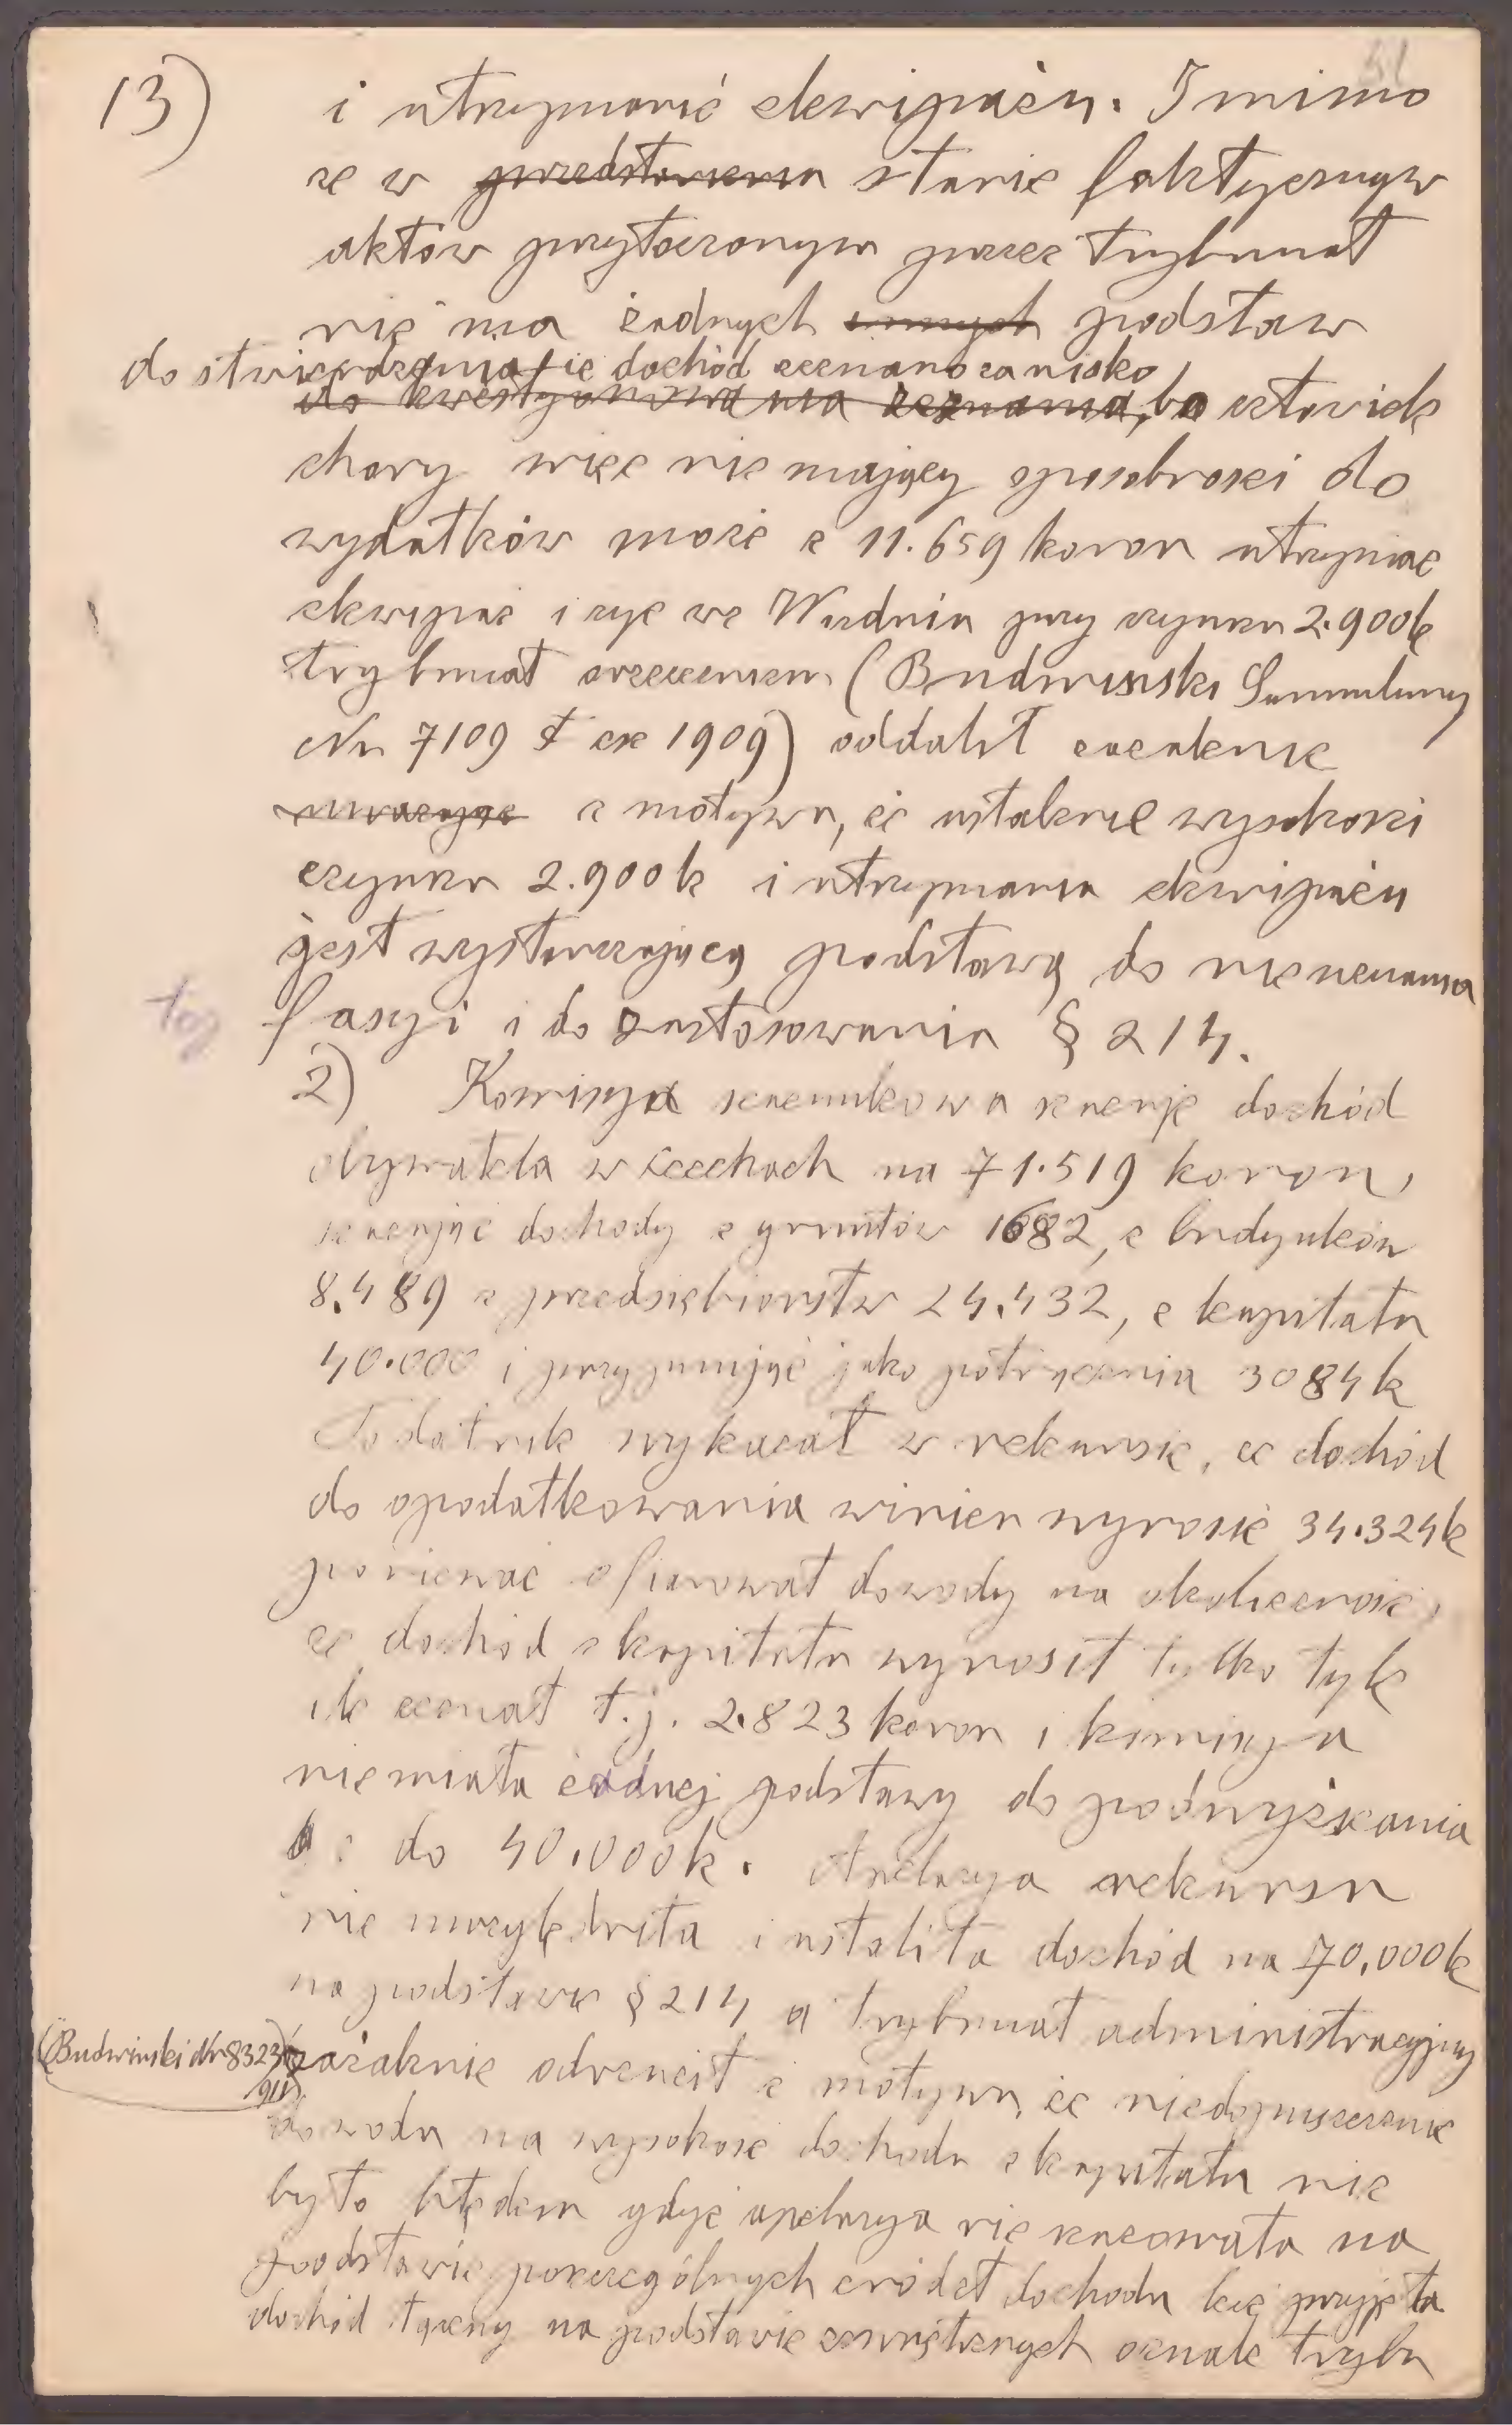 13)
i utrzymanie ekwipażu. I mimo
że w przedstawieniu stanie faktycznym
aktów przytoczonym przez trybunał
nie ma żadnych innych podstaw
do stwierdzenia że dochód zeznano za nisko
do kwestyonowania zeznania, bo człowiek
chory więc nie mający sposobności do
wydatków może z 11.659 koron utrzymać
ekwipaż i żyć we Wiedniu przy czynszu 2.900 k
trybunał orzeczeniem (Budwinski Sammlung
Nr 7109 ex 1909) oddalił zażalenie
uważając z motywu, że ustalenie wysokości
czynszu 2.900 k i utrzymania ekwipażu
jest wystarczającą podstawą do nieuznania
fasyi i do zastosowania § 214.
2) Komisya szacunkowa szacuje dochód
obywatela w Czechach na 71.519 koron,
szacując dochody z gruntów 1682, z budynków
8.489 z przedsiębiorstw 24.432, z kapitału
40.000 i przyjmując jako potrącenia 3084 k
Podatnik wykazał w rekursie, że dochód
do opodatkowania winien wynosić 34.324 k
ponieważ ofiarował dowody na okoliczność,
że dochód z kapitału wynosił tylko tyle
ile zeznał t.j. 2.823 koron i komisya
nie miała żadnej podstawy do podwyższania
do 40.000 k. Apelacya rekursu
nie uwzględniła i ustaliła dochód na 70.000 k
na podstawie § 214 a trybunał administracyjny
(Budwinski Nr 8323
911)
zażalenie odrzucił z motywu, że niedopuszczenie
dowodu na wysokość dochodu z kapitału nie
było błędem gdyż apelacya nie szacowała na
podstawie poszczególnych źródeł dochodu lecz przyjęła
dochód łączny na podstawie zewnętrznych oznak trybu